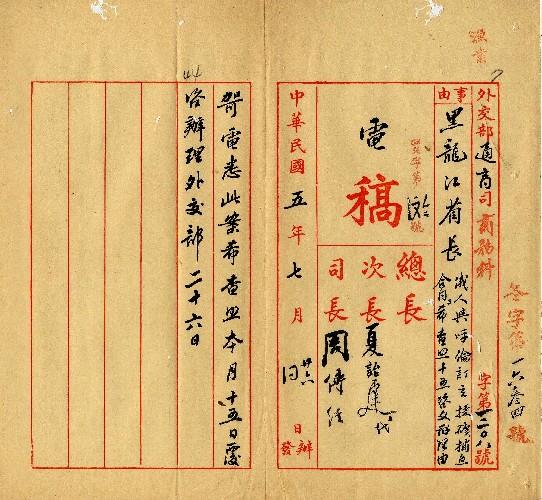 漁業
外交部通商司商務科
字第一二〇八號
事由
黑龍江省長
俄人與呼倫訂立採礦捕魚
合同希查照十五咨文辦理由
電
稿
總長
次長夏詒霆代
司長周傳經
中華民國五年七月廿六日
同日
發辦
賀電悉此案希查照本月十五日覆
咨辦理外交部二十六日